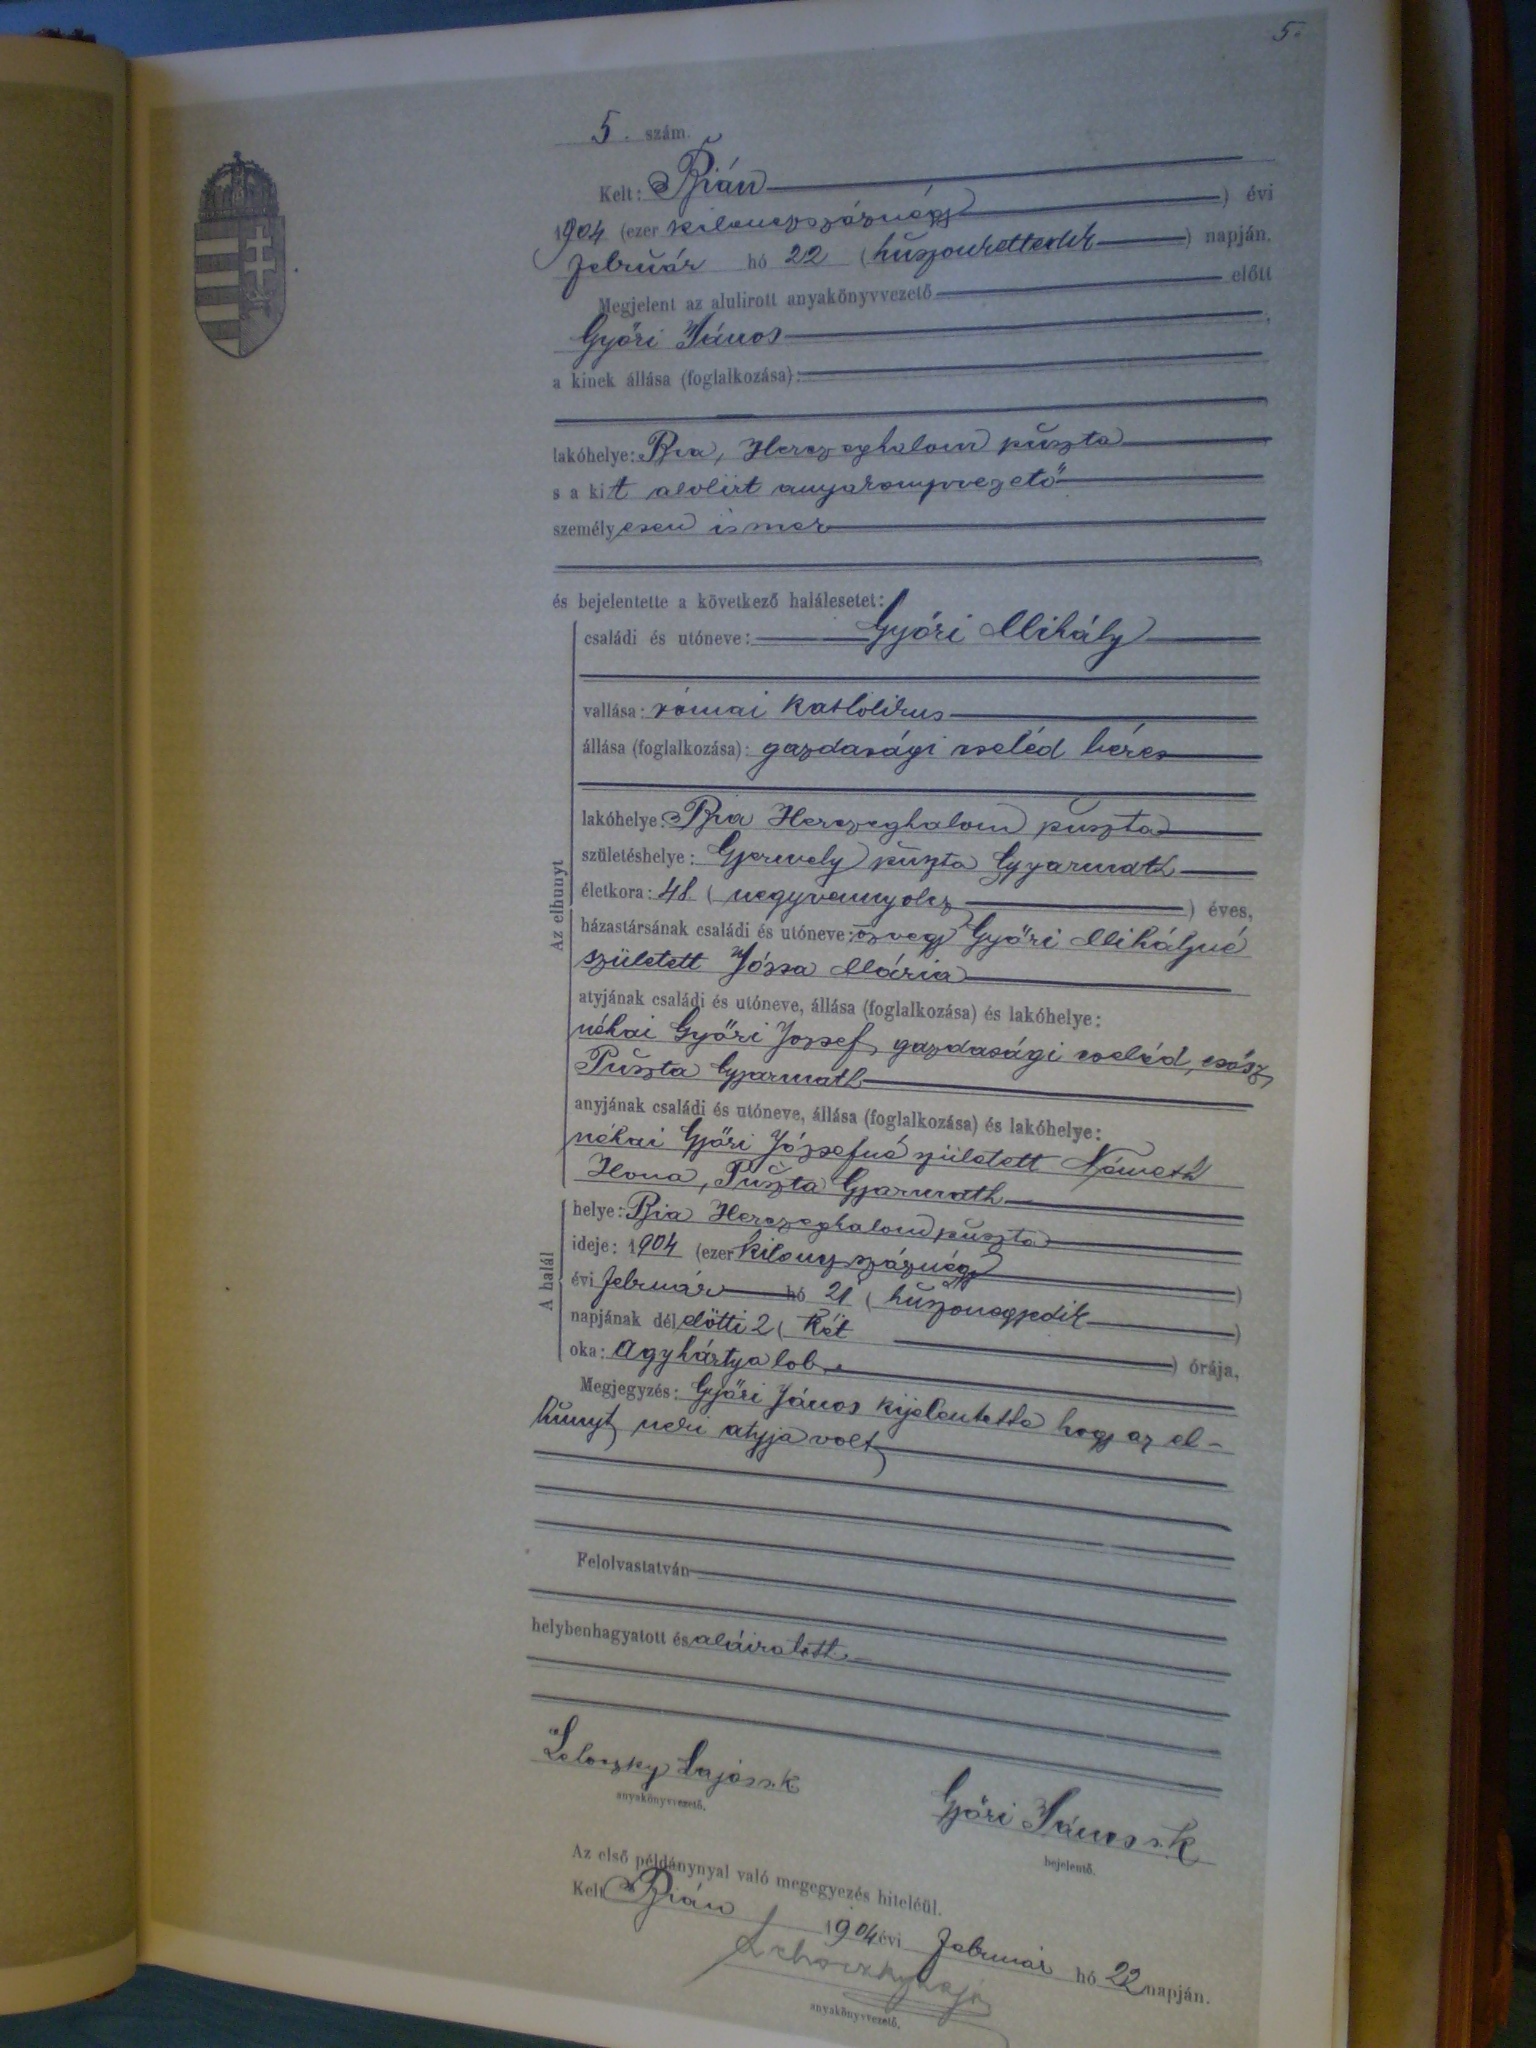 5.
5. szám.
Kelt: Bián
1904 (ezer kilenczszáznégy) évi
február hó 22 (huszonkettedik) napján.
Megjelent az alulirott anyakönyvvezető előtt
Győri János
a kinek állása (foglalkozása):
lakóhelye: Bia, Herczeghalom puszta
s a kit alulirt anyakönyvvezető
személyesen ismer
és bejelentette a következő halálesetet:
Az elhunyt
családi és utóneve: Győri Mihály
vallása: római katholikus
állása (foglalkozása): gazdasági cseléd béres
lakóhelye: Bia Herczeghalom puszta
születéshelye: Gyermely puszta Gyarmath
életkora: 48 (negyvennyolcz) éves,
házastársának családi és utóneve: özvegy Győri Mihályné
született Józsa Mária
atyjának családi és utóneve, állása (foglalkozása) és lakóhelye:
néhai Győri József, gazdasági cseléd, csősz,
Puszta Gyarmath
anyjának családi és utóneve, állása (foglalkozása) és lakóhelye:
néhai Győri Józsefné született Németh
Ilona, Puszta Gyarmath
A halál
helye: Bia Herczeghalom puszta
ideje: 1904 (ezer kilenczszáznégy)
évi február hó 21 (huszonegyedik)
napjának délelőtti 2 (két) órája,
oka: agyhártyalob.
Megjegyzés: Győri János kijelentette hogy az el-
hunyt neki atyja volt
Felolvastatván
helybenhagyatott és aláiratott.
Lehoczky Lajos s.k.
anyakönyvvezető.
Győri János s.k.
bejelentő.
Az első példánynyal való megegyezés hiteléül.
Kelt Bián 1904 évi február hó 22 napján.
Lehoczky Lajos
anyakönyvvezető.